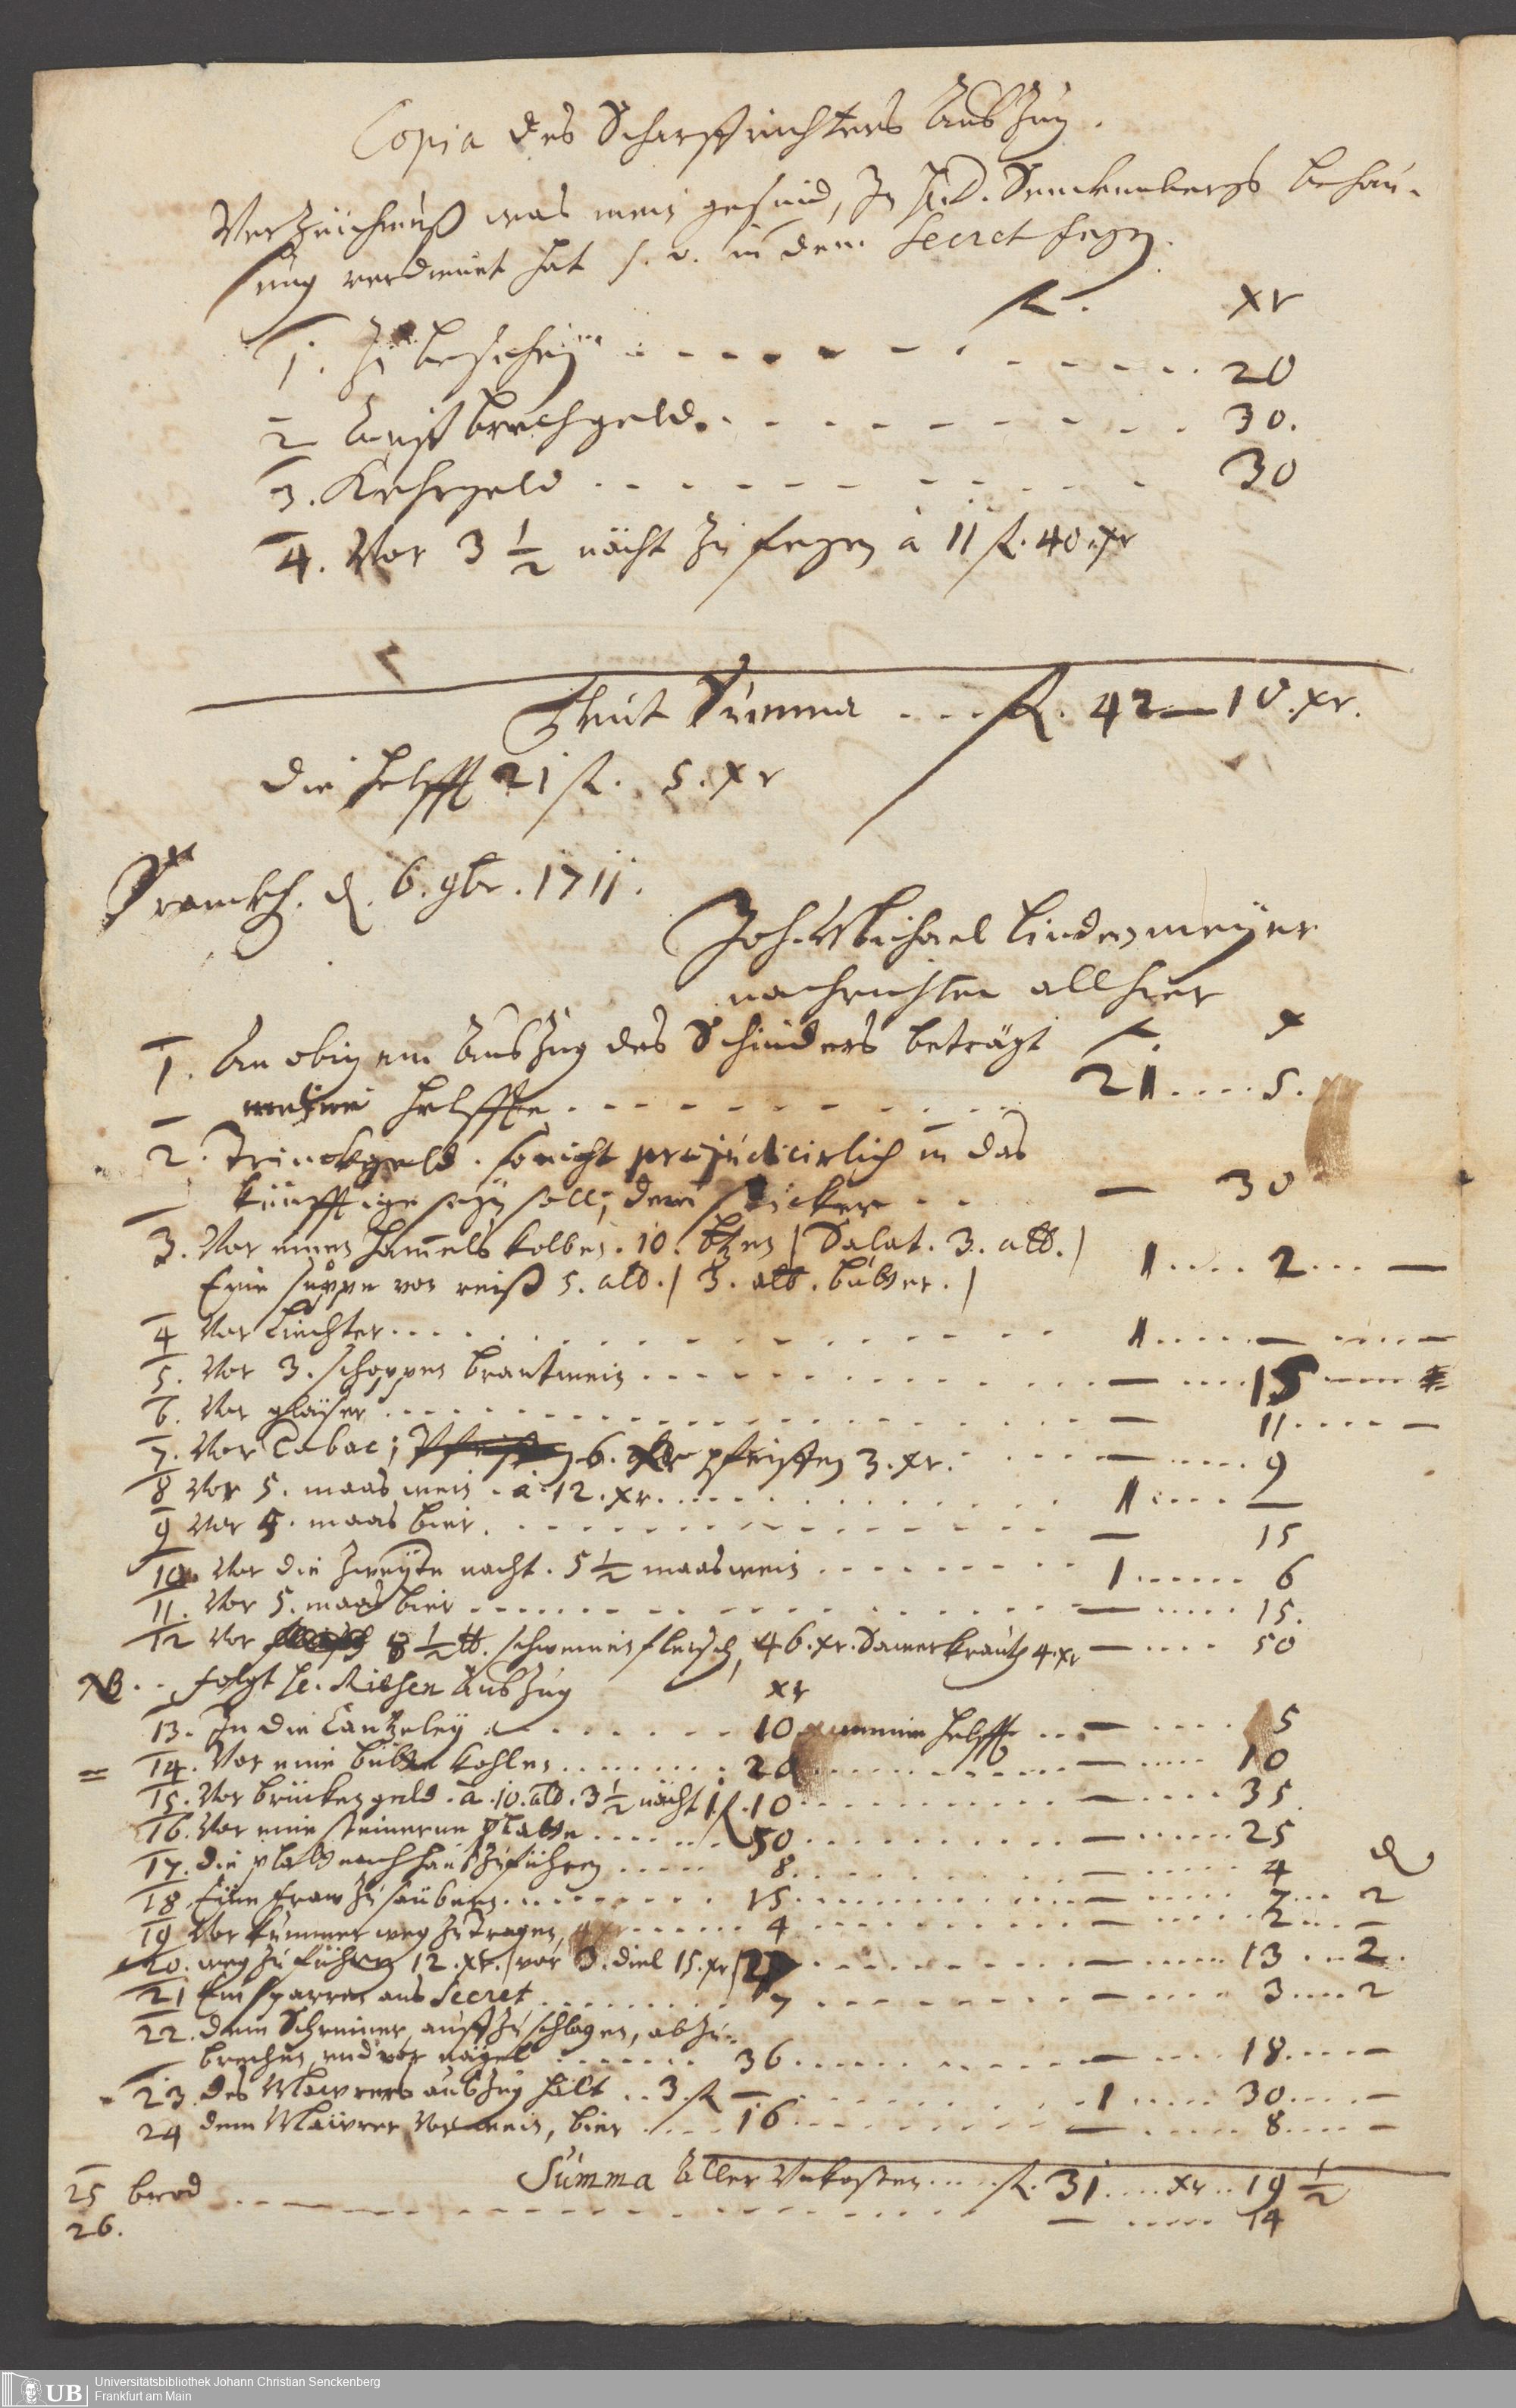 Copia des Scharffrichters Außzug.
Verzeichnuß was mein gesind, in H. D. Senckenbergs behau-
sung verdienet hat s. v. in dem Secret fegen.
fl. xr
1. Zu besichtigen . . . 20
2 Auffbrechgeld . . . 30.
3. Kehrgeld . . . 30
4. Vor 3 1/2 nächt zu fegen à 11 fl. 40 xr
Thut Summa . . . fl. 42 — 10. xr.
Die helfft 21 fl. 5. xr
Franckf. d. 6. 9br. 1711.
Joh. Michael Lindenmeyer
nachrichter allhier
1. An obigem Außzug des Schinders beträgt fl. x
meine helffte . . . 21 . . . . 5.
2. Trinckgeld. so nicht præjudicirlich in das
künfftige seyn soll, dem sticker . . — 30
3. Vor einen hammels kolben. 10. btzen / Salat. 3. alb. /
Eine suppe von reiß 5. alb. / 3. alb. butter. / 1 . . . . 2 . . . —
4 Vor Liechter . . . 1 . . . . — . . . . —
5. Vor 3. schoppen brantwein . . . — . . . . 15 . . . .
6. Vor gläser . . . — 11 . . . . —
7. Vor Tabac; 6. xr pfeiffen 3. xr. . . . — . . . . 9
8 Vor 5. maas wein. à 12. xr. . . . 1 . . . . —
9 Vor 5. maas bier. . . . — 15
10. Vor die zweyte nacht. 5 1/2 maas wein . . . 1 . . . . 6
11. Vor 5. maas bier . . . — . . . . 15.
12 Vor 8 1/2 lb. schweinen fleisch, 46. xr. Sauerkraut 4. xr — . . . . 50
NB. . . folgt H. Riesen Außzug xr
13. In die Cantzeley . . . 10 meine helfft . . . — . . . . 5
14. Vor eine bütte kohlen . . . 20 . . . — . . . . 10
15. Vor brückengeld. à 10. alb. 3 1/2 nächt 1 fl. 10 . . . — . . . . 35.
16. Vor eine steinerne platte . . . 50 . . . — . . . . 25
17. die platt nach hauß zu führen . . . 8 . . . — . . . . 4 d
18. Eine fraw zu säubern . . . 15 . . . — . . . . 7 . . . 2
19 Vor kummer weg zu tragen, . . . 4 . . . — . . . . 2 . . . —
20. weg zu führen 12. xr. / vor 3. diel 15. xr / 27 . . . — . . . . 13 . . . 2.
21 Ein sparren ans Secret . . . 7 . . . — . . . . 3 . . . . 2
22. dem Schreiner, auffzuschlagen, abzu-
brechen und vor nägel . . . 36 . . . — . . . . 18 . . . . —
23. des Mäurers außzug hält . . 3. fl — . . . 1 . . . . 30 . . . . —
24 dem Mäurer vor wein, bier . . . 16 . . . — . . . . 8 . . . . —
Summa Aller Unkosten . . . . fl. 31 . . . . xr . . 19 1/2
25 brod . . . — . . . . 14
26.
Universitätsbibliothek Johann Christian Senckenberg
Frankfurt am Main
UB